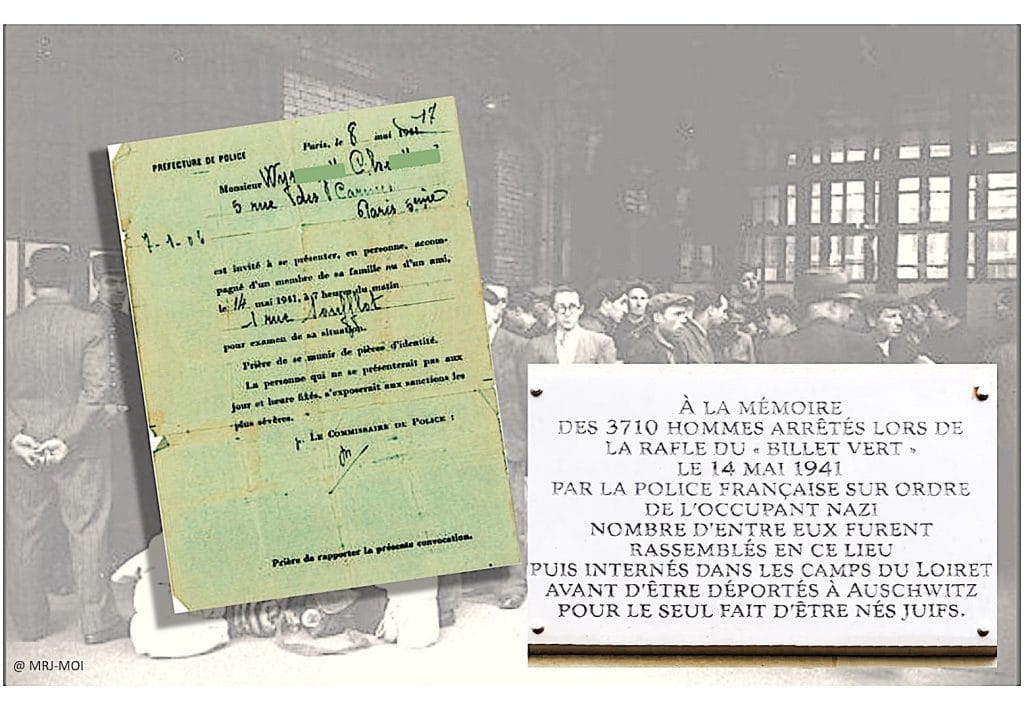 PREFECTURE DE POLICE
Paris, le 8 mai 17
Monsieur Wys
5 rue des Carmes
Paris 5eme
7-1-06
est invité à se présenter, en personne, accom-
pagné d'un membre de sa famille ou d'un ami,
le 14 mai 1941, à 7 heures du matin
1 rue Soufflot
pour examen de sa situation.
Prière de se munir de pièces d'identité.
La personne qui ne se présenterait pas aux
jour et heure fixés, s'exposerait aux sanctions les
plus sévères.
LE COMMISSAIRE DE POLICE :
Prière de rapporter la présente convocation.
À LA MÉMOIRE
DES 3710 HOMMES ARRÊTÉS LORS DE
LA RAFLE DU « BILLET VERT »
LE 14 MAI 1941
PAR LA POLICE FRANÇAISE SUR ORDRE
DE L'OCCUPANT NAZI
NOMBRE D'ENTRE EUX FURENT
RASSEMBLÉS EN CE LIEU
PUIS INTERNÉS DANS LES CAMPS DU LOIRET
AVANT D'ÊTRE DÉPORTÉS À AUSCHWITZ
POUR LE SEUL FAIT D'ÊTRE NÉS JUIFS.
@ MRJ-MOI